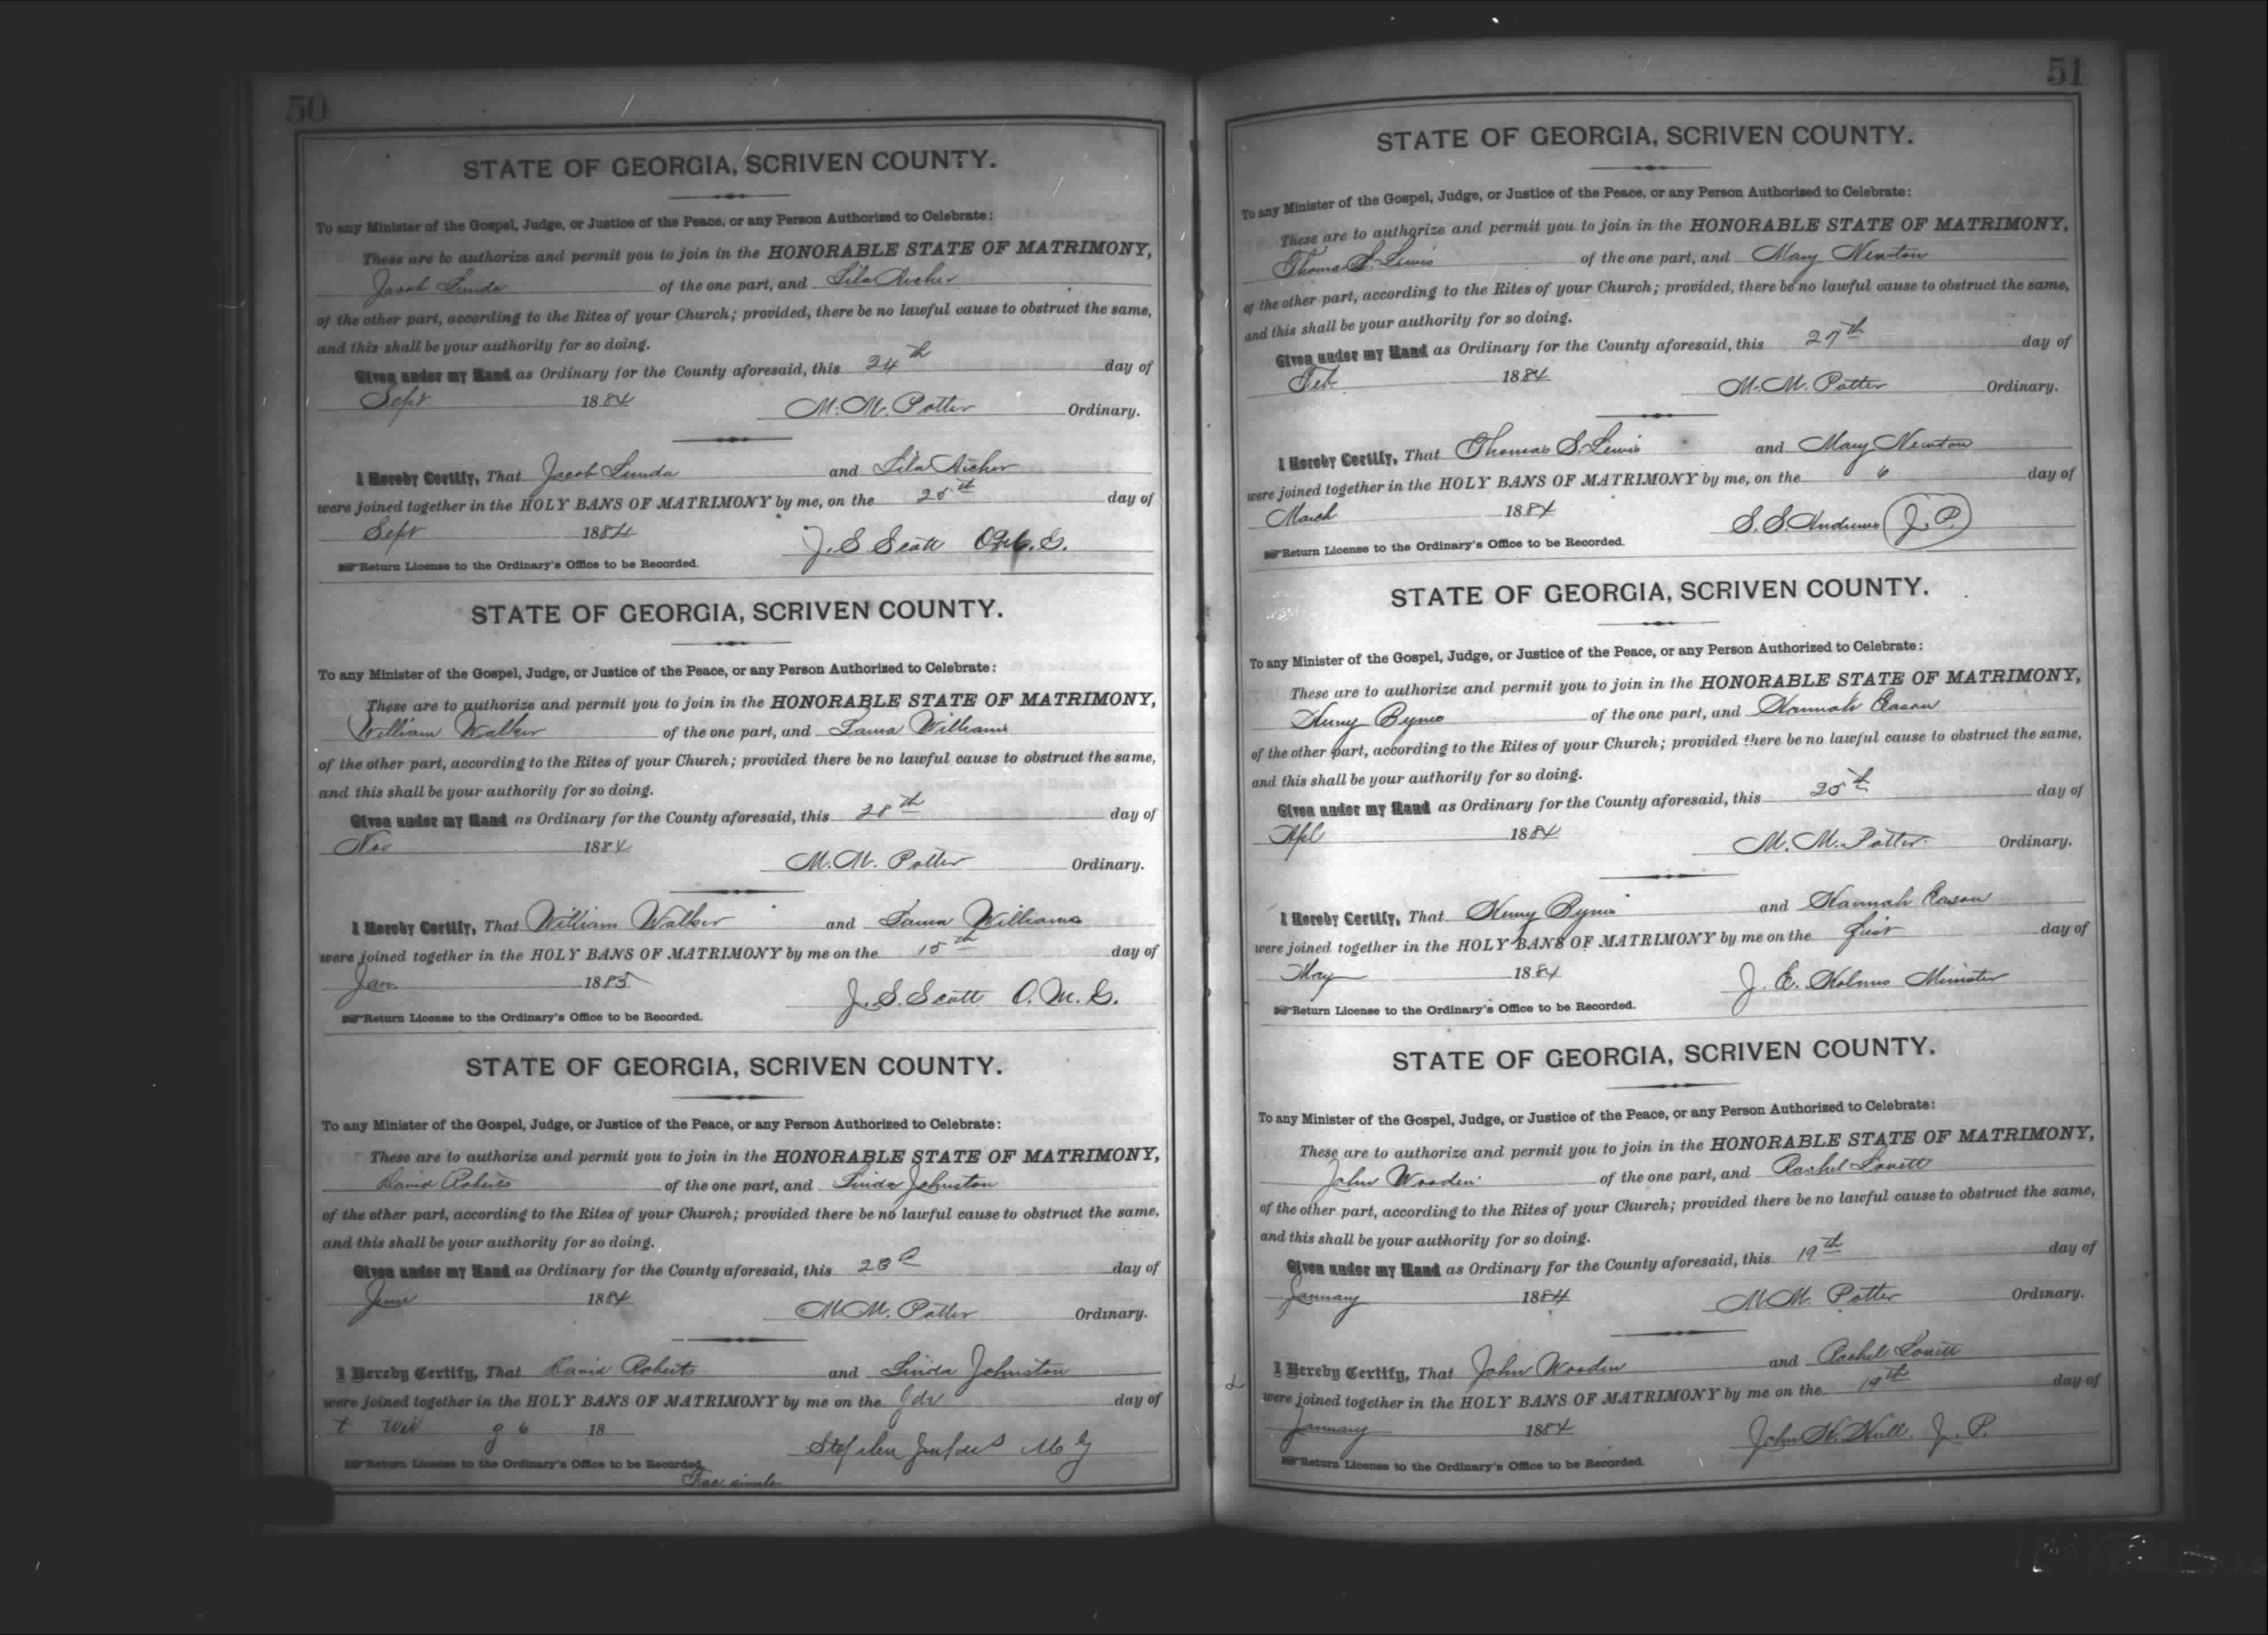 50
STATE OF GEORGIA, SCRIVEN COUNTY.
To any Minister of the Gospel, Judge, or Justice of the Peace, or any Person Authorized to Celebrate:
These are to authorize and permit you to join in the HONORABLE STATE OF MATRIMONY,
Jacob Lunda of the one part, and Lila Archer
of the other part, according to the Rites of your Church; provided, there be no lawful cause to obstruct the same,
and this shall be your authority for so doing.
Given under my Hand as Ordinary for the County aforesaid, this 24th day of
Sept 1884 M. M. Potter Ordinary.
I Hereby Certify, That Jacob Lunda and Lila Archer
were joined together in the HOLY BANS OF MATRIMONY by me, on the 25th day of
Sept 1884 J. S Scott
Return License to the Ordinary's Office to be Recorded.
STATE OF GEORGIA, SCRIVEN COUNTY.
To any Minister of the Gospel, Judge, or Justice of the Peace, or any Person Authorized to Celebrate:
These are to authorize and permit you to join in the HONORABLE STATE OF MATRIMONY,
William Walker of the one part, and Williams
of the other part, according to the Rites of your Church; provided there be no lawful cause to obstruct the same,
and this shall be your authority for so doing.
Given under my Hand as Ordinary for the County aforesaid, this 28th day of
Nov 1884 M. M. Potter Ordinary.
I Hereby Certify, That William Walker and Williams
were joined together in the HOLY BANS OF MATRIMONY by me on the 15th day of
Jan. 1885 J. S. Scott O. M. G.
Return License to the Ordinary's Office to be Recorded.
STATE OF GEORGIA, SCRIVEN COUNTY.
To any Minister of the Gospel, Judge, or Justice of the Peace, or any Person Authorized to Celebrate:
These are to authorize and permit you to join in the HONORABLE STATE OF MATRIMONY,
David Roberts of the one part, and Linda Johnston
of the other part, according to the Rites of your Church; provided there be no lawful cause to obstruct the same,
and this shall be your authority for so doing.
Given under my Hand as Ordinary for the County aforesaid, this 28 day of
June 1884 M M. Potter Ordinary.
I Hereby Certify, That David Roberts and Linda Johnston
were joined together in the HOLY BANS OF MATRIMONY by me on the day of
18 Stephen
Return License to the Ordinary's Office to be Recorded.
Fac simile
51
STATE OF GEORGIA, SCRIVEN COUNTY.
To any Minister of the Gospel, Judge, or Justice of the Peace, or any Person Authorized to Celebrate:
These are to authorize and permit you to join in the HONORABLE STATE OF MATRIMONY,
Thomas S. Lewis of the one part, and Mary Newton
of the other part, according to the Rites of your Church; provided, there be no lawful cause to obstruct the same,
and this shall be your authority for so doing.
Given under my Hand as Ordinary for the County aforesaid, this 27th day of
Feb. 1884 M. M. Potter Ordinary.
I Hereby Certify, That Thomas S. Lewis and Mary Newton
were joined together in the HOLY BANS OF MATRIMONY by me, on the 6 day of
March 1884 S. S. Andrews J. P.
Return License to the Ordinary's Office to be Recorded.
STATE OF GEORGIA, SCRIVEN COUNTY.
To any Minister of the Gospel, Judge, or Justice of the Peace, or any Person Authorized to Celebrate:
These are to authorize and permit you to join in the HONORABLE STATE OF MATRIMONY,
Henry Byrne of the one part, and Hannah Eason
of the other part, according to the Rites of your Church; provided there be no lawful cause to obstruct the same,
and this shall be your authority for so doing.
Given under my Hand as Ordinary for the County aforesaid, this 25th day of
Apl 1884 M. M. Potter. Ordinary.
I Hereby Certify, That Henry Byrne and Hannah Eason
were joined together in the HOLY BANS OF MATRIMONY by me on the first day of
May 1884 J. E. Holmes Minister
Return License to the Ordinary's Office to be Recorded.
STATE OF GEORGIA, SCRIVEN COUNTY.
To any Minister of the Gospel, Judge, or Justice of the Peace, or any Person Authorized to Celebrate:
These are to authorize and permit you to join in the HONORABLE STATE OF MATRIMONY,
John Wooden of the one part, and Rachel Lovett
of the other part, according to the Rites of your Church; provided there be no lawful cause to obstruct the same,
and this shall be your authority for so doing.
Given under my Hand as Ordinary for the County aforesaid, this 19th day of
January 1884 M. M. Potter Ordinary.
I Hereby Certify, That John Wooden and Rachel Lovett
were joined together in the HOLY BANS OF MATRIMONY by me on the 19th day of
January 1884 John H. Hull. J. P.
Return License to the Ordinary's Office to be Recorded.